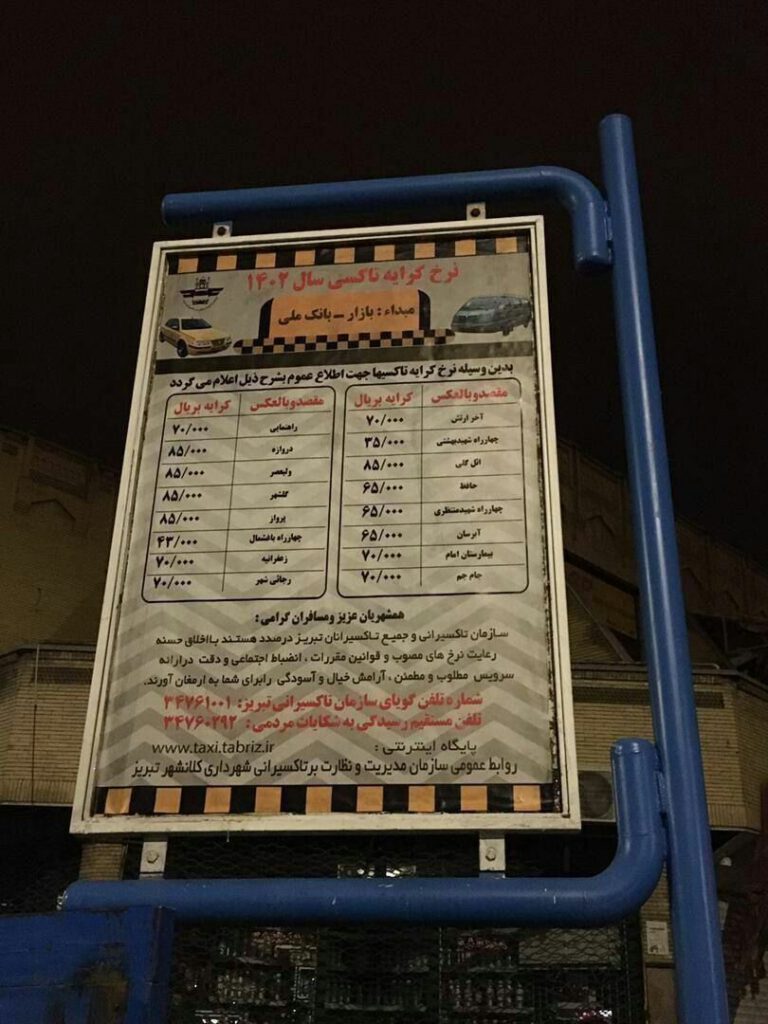 نرخ کرایه تاکسی سال ۱۴۰۲
مبداء : بازار – بانک ملی
بدین وسیله نرخ کرایه تاکسیها جهت اطلاع عموم بشرح ذیل اعلام می گردد
مقصدوبالعکس کرایه بریال
آخر ارتش ۷۰/۰۰۰
چهارراه شهیدبهشتی ۳۵/۰۰۰
ائل گلی ۸۵/۰۰۰
حافظ ۶۵/۰۰۰
چهارراه شهیدمنتظری ۶۵/۰۰۰
آبرسان ۶۵/۰۰۰
بیمارستان امام ۷۰/۰۰۰
جام جم ۷۰/۰۰۰
مقصدوبالعکس کرایه بریال
راهنمایی ۷۰/۰۰۰
دروازه ۸۵/۰۰۰
ولیعصر ۸۵/۰۰۰
گلشهر ۸۵/۰۰۰
پرواز ۸۵/۰۰۰
چهارراه باغشمال ۴۳/۰۰۰
زعفرانیه ۷۰/۰۰۰
رجائی شهر ۷۰/۰۰۰
همشهریان عزیز ومسافران گرامی :
سازمان تاکسیرانی و جمیع تاکسیرانان تبریز درصدد هستند بااخلاق حسنه
رعایت نرخ های مصوب و قوانین مقررات ، انضباط اجتماعی و دقت درارائه
سرویس مطلوب و مطمئن ، آرامش خیال و آسودگی رابرای شما به ارمغان آورند.
شماره تلفن گویای سازمان تاکسیرانی تبریز: ۳۴۷۶۱۰۰۱
تلفن مستقیم رسیدگی به شکایات مردمی : ۳۴۷۶۰۲۹۲
پایگاه اینترنتی : www.taxi.tabriz.ir
روابط عمومی سازمان مدیریت و نظارت برتاکسیرانی شهرداری کلانشهر تبریز